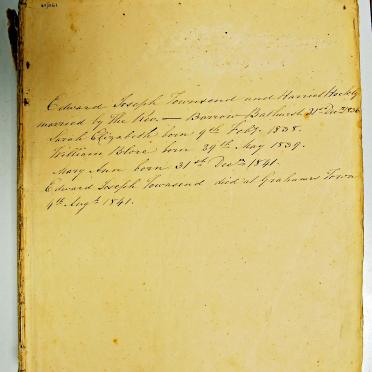 Edward Joseph Townsend and Harriet Hockly
married by the Rev. — Barrow Bathurst 31st Dec 1836
Sarah Elizabeth born 9th Feby. 1838.
William Blore born 29th May 1839.
Mary Ann born 31st Decr 1841.
Edward Joseph Townsend died at Grahams Town
4th Augt 1841.